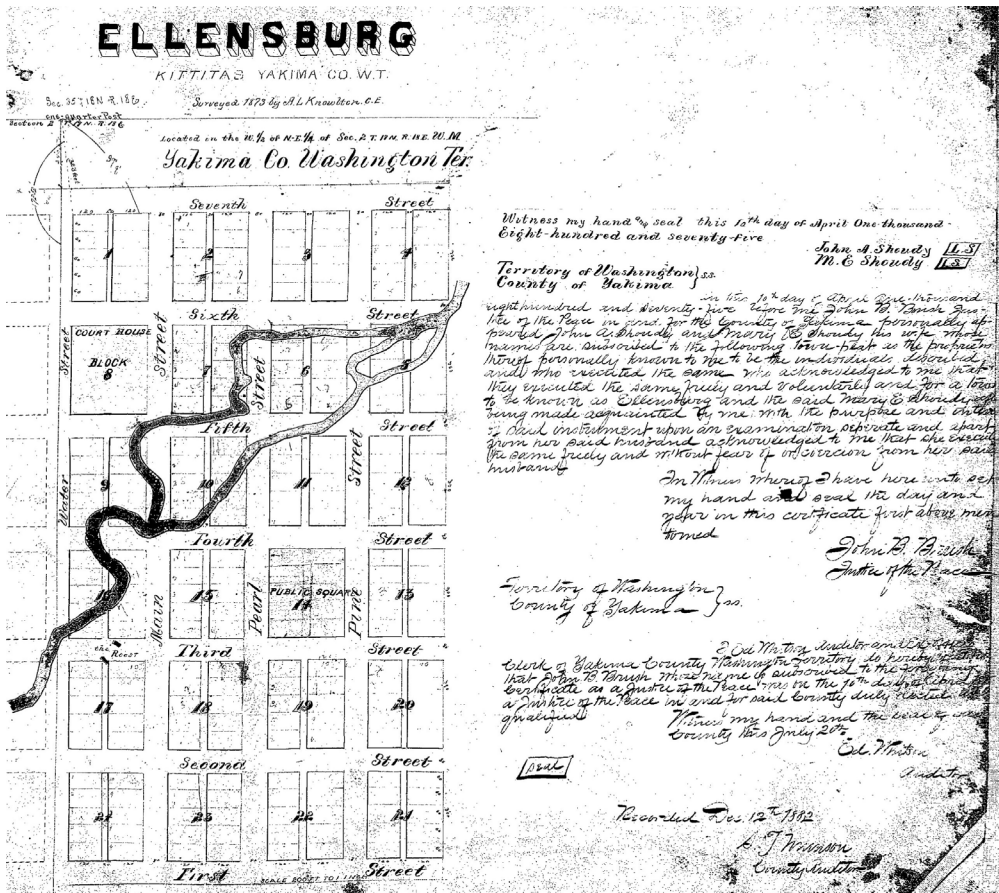 ELLENSBURG
KITTITAS YAKIMA CO. W.T.
Surveyed 1873 by A.L Knowlton. C.E.
Sec. 35 T 18 N. R. 18 E.
one-quarter Post
Section 2 T. 17 N. R. 18 E
Located in the W. ½ of N-E. ¼ of Sec. 2 T. 17 N. R. 18 E. W. M
Yakima Co. Washington Ter
Seventh Street
120 120
1 2 3 4
Sixth Street
COURT HOUSE
BLOCK
8
7 6 5
Street
Street
Street
Fifth Street
Street
9 10 11 12
Water
Fourth Street
16 15
PUBLIC SQUARE
14
13
Main
Pearl
Pine
the Roost
Third Street
17 18 19 20
Second Street
24 23 22 21
First Street
SCALE 200 FT TO 1 INCH
Witness my hand and seal this 10th day of April One-thousand
Eight-hundred and seventy-five
John A. Shoudy L.S
M. E Shoudy L.S
Territory of Washington } s.s.
County of Yakima
on this 10th day of April One-thousand
eight hundred and seventy-five before me John B. Brush Jus-
tice of the Peace in and for the County of Yakima personally ap-
peared John A. Shoudy and Mary E Shoudy his wife whose
names are subscribed to the following town-plat as the proprietors
thereof personally known to me to be the individuals described
and who executed the same who acknowledged to me that
they executed the same freely and voluntarily and for a town
to be known as Ellensburg and the said Mary E Shoudy
being made acquainted by me with the purpose and
of said instrument upon an examination seperate and apart
from her said husband acknowledged to me that she
the same freely and without fear of or coercion from her said
husband
In Witness whereof I have here unto set
my hand and seal the day and
year in this certificate first above men
tioned
John B. Brush
Justice of the Peace
Territory of Washington } ss.
County of Yakima
I Ed Whitson Auditor and
Clerk of Yakima County Washington Territory do hereby
that John B. Brush whose name is subscribed to the foregoing
Certificate as a Justice of the Peace was on the 10th day of April
a Justice of the Peace in and for said County duly elected
qualified
Witness my hand and the seal of
County this July 20th
Ed. Whitson
Auditor
Seal
Recorded Dec. 12th 1882
County Auditor